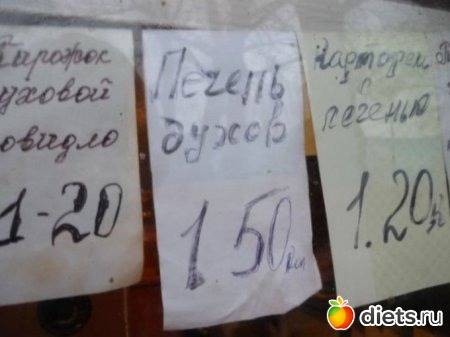 Пирожок
уховой
овидло
1-20
Печень
духов
1.50
с
печенью
1.20
diets.ru